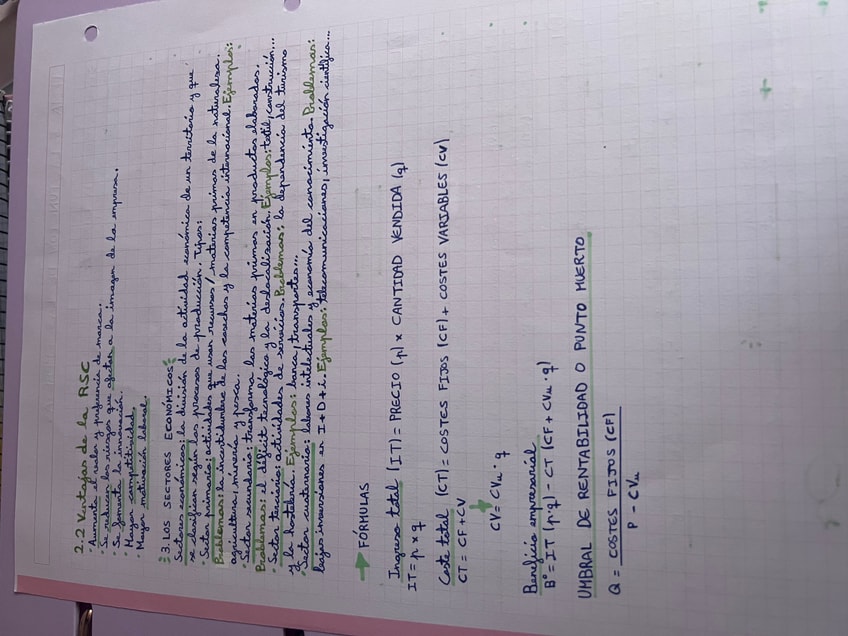 2.2 Ventajas de la RSC
· Aumenta el valor y preferencia de marca.
· Se reducen los riesgos que afectan a la imagen de la empresa.
· Se fomenta la innovación.
· Mayor competitividad.
· Mayor motivación laboral.
3. LOS SECTORES ECONÓMICOS:
Sectores económicos: la división de la actividad económica de un territorio y que
se clasifican según los procesos de producción. Tipos:
· Sector primario: actividades que usan recursos / materias primas de la naturaleza.
Problemas: la incertidumbre de las cosechas y la competencia internacional. Ejemplos:
agricultura, minería y pesca.
· Sector secundario: transforma las materias primas en productos elaborados.
Problemas: el déficit tecnológico y la deslocalización. Ejemplos: textil, construcción...
· Sector terciario: actividades de servicios. Problemas: la dependencia del turismo
y la hostelería. Ejemplos: banca, transportes...
· Sector cuaternario: labores intelectuales y economía del conocimiento. Problemas:
bajas inversiones en I+D+i. Ejemplos: telecomunicaciones, investigación científica...
→ FÓRMULAS
Ingreso total (IT) = PRECIO (p) x CANTIDAD VENDIDA (q)
IT = p x q
Coste total (CT) = COSTES FIJOS (CF) + COSTES VARIABLES (CV)
CT = CF + CV
CV = CVu · q
Beneficio empresarial
Bº = IT (p·q) - CT (CF + CVu · q)
UMBRAL DE RENTABILIDAD O PUNTO MUERTO
Q = COSTES FIJOS (CF)
P - CVu